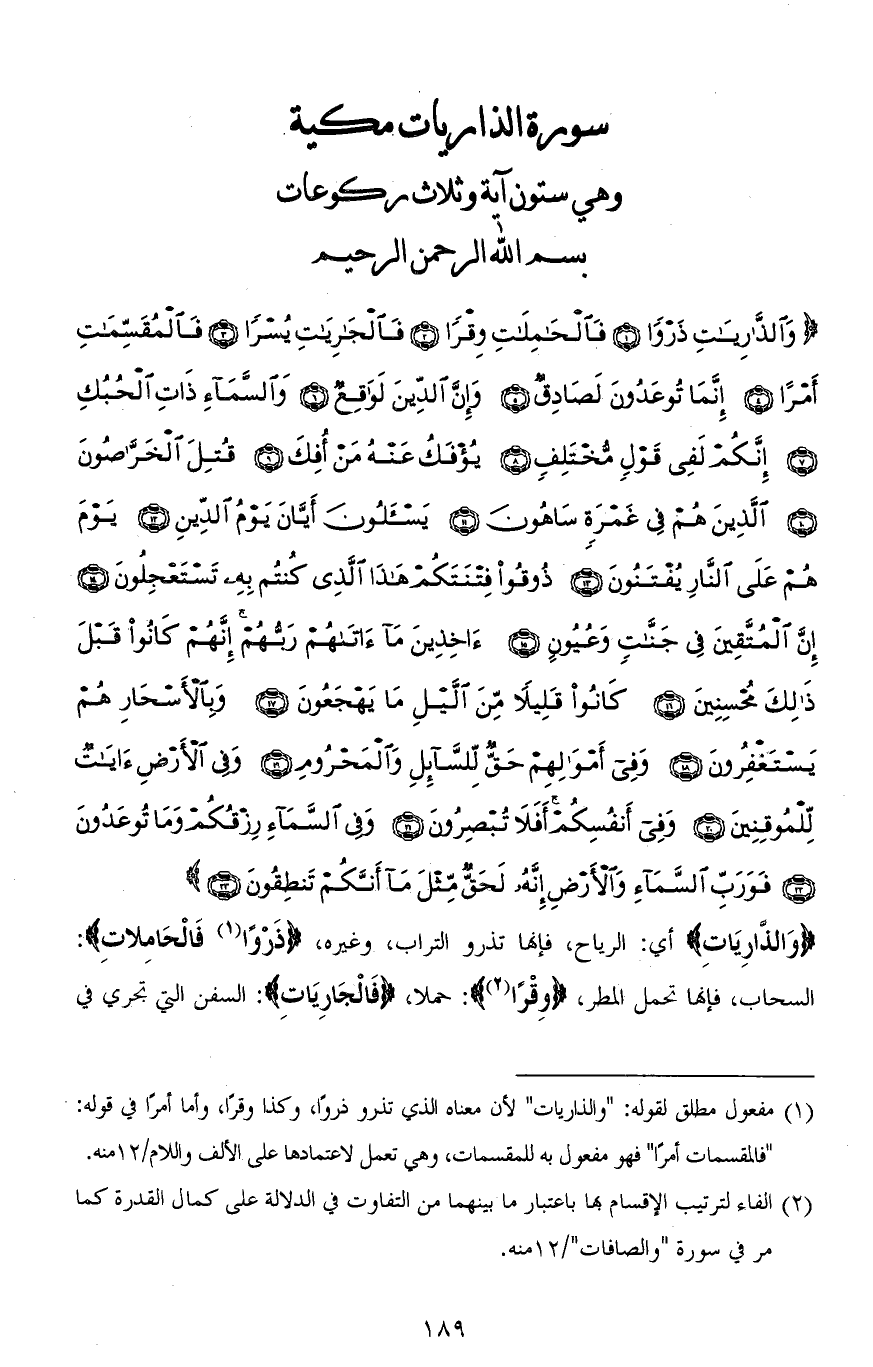 سورة الذاريات مكية
وهي ستون آية وثلاث ركوعات
بسم الله الرحمن الرحيم
﴿ وَٱلذَّٰرِيَـٰتِ ذَرْوًا ۝١ فَٱلْحَـٰمِلَـٰتِ وِقْرًا ۝٢ فَٱلْجَـٰرِيَـٰتِ يُسْرًا ۝٣ فَٱلْمُقَسِّمَـٰتِ
أَمْرًا ۝٤ إِنَّمَا تُوعَدُونَ لَصَادِقٌ ۝٥ وَإِنَّ ٱلدِّينَ لَوَٰقِعٌ ۝٦ وَٱلسَّمَآءِ ذَاتِ ٱلْحُبُكِ
۝٧ إِنَّكُمْ لَفِى قَوْلٍ مُّخْتَلِفٍ ۝٨ يُؤْفَكُ عَنْهُ مَنْ أُفِكَ ۝٩ قُتِلَ ٱلْخَرَّٰصُونَ
۝١٠ ٱلَّذِينَ هُمْ فِى غَمْرَةٍ سَاهُونَ ۝١١ يَسْـَٔلُونَ أَيَّانَ يَوْمُ ٱلدِّينِ ۝١٢ يَوْمَ
هُمْ عَلَى ٱلنَّارِ يُفْتَنُونَ ۝١٣ ذُوقُوا۟ فِتْنَتَكُمْ هَـٰذَا ٱلَّذِى كُنتُم بِهِۦ تَسْتَعْجِلُونَ ۝١٤
إِنَّ ٱلْمُتَّقِينَ فِى جَنَّـٰتٍ وَعُيُونٍ ۝١٥ ءَاخِذِينَ مَآ ءَاتَىٰهُمْ رَبُّهُمْ ۚ إِنَّهُمْ كَانُوا۟ قَبْلَ
ذَٰلِكَ مُحْسِنِينَ ۝١٦ كَانُوا۟ قَلِيلًا مِّنَ ٱلَّيْلِ مَا يَهْجَعُونَ ۝١٧ وَبِٱلْأَسْحَارِ هُمْ
يَسْتَغْفِرُونَ ۝١٨ وَفِىٓ أَمْوَٰلِهِمْ حَقٌّ لِّلسَّآئِلِ وَٱلْمَحْرُومِ ۝١٩ وَفِى ٱلْأَرْضِ ءَايَـٰتٌ
لِّلْمُوقِنِينَ ۝٢٠ وَفِىٓ أَنفُسِكُمْ ۚ أَفَلَا تُبْصِرُونَ ۝٢١ وَفِى ٱلسَّمَآءِ رِزْقُكُمْ وَمَا تُوعَدُونَ
۝٢٢ فَوَرَبِّ ٱلسَّمَآءِ وَٱلْأَرْضِ إِنَّهُۥ لَحَقٌّ مِّثْلَ مَآ أَنَّكُمْ تَنطِقُونَ ۝٢٣ ﴾
﴿وَالذَّارِيَاتِ﴾ أي: الرياح، فإنها تذرو التراب، وغيره، ﴿ذَرْوًا(١) فَالْحَامِلات﴾:
السحاب، فإنها تحمل المطر، ﴿وِقْرًا(٢)﴾: حملا، ﴿فَالْجَارِيَاتِ﴾: السفن التي تجري في
(١) مفعول مطلق لقوله: "والذاريات" لأن معناه الذي تذرو ذروًا، وكذا وقرًا، وأما أمرًا في قوله:
"فالمقسمات أمرًا" فهو مفعول به للمقسمات، وهي تعمل لاعتمادها على الألف واللام/١٢منه.
(٢) الفاء لترتيب الإقسام بها باعتبار ما بينهما من التفاوت في الدلالة على كمال القدرة كما
مر في سورة "والصافات"/١٢منه.
١٨٩